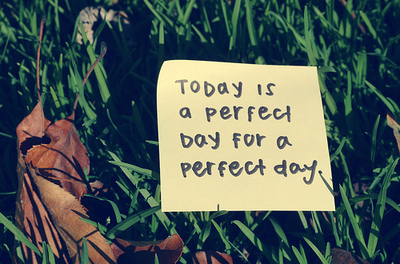 TODAY IS
a perfect
Day for a
perfect day.